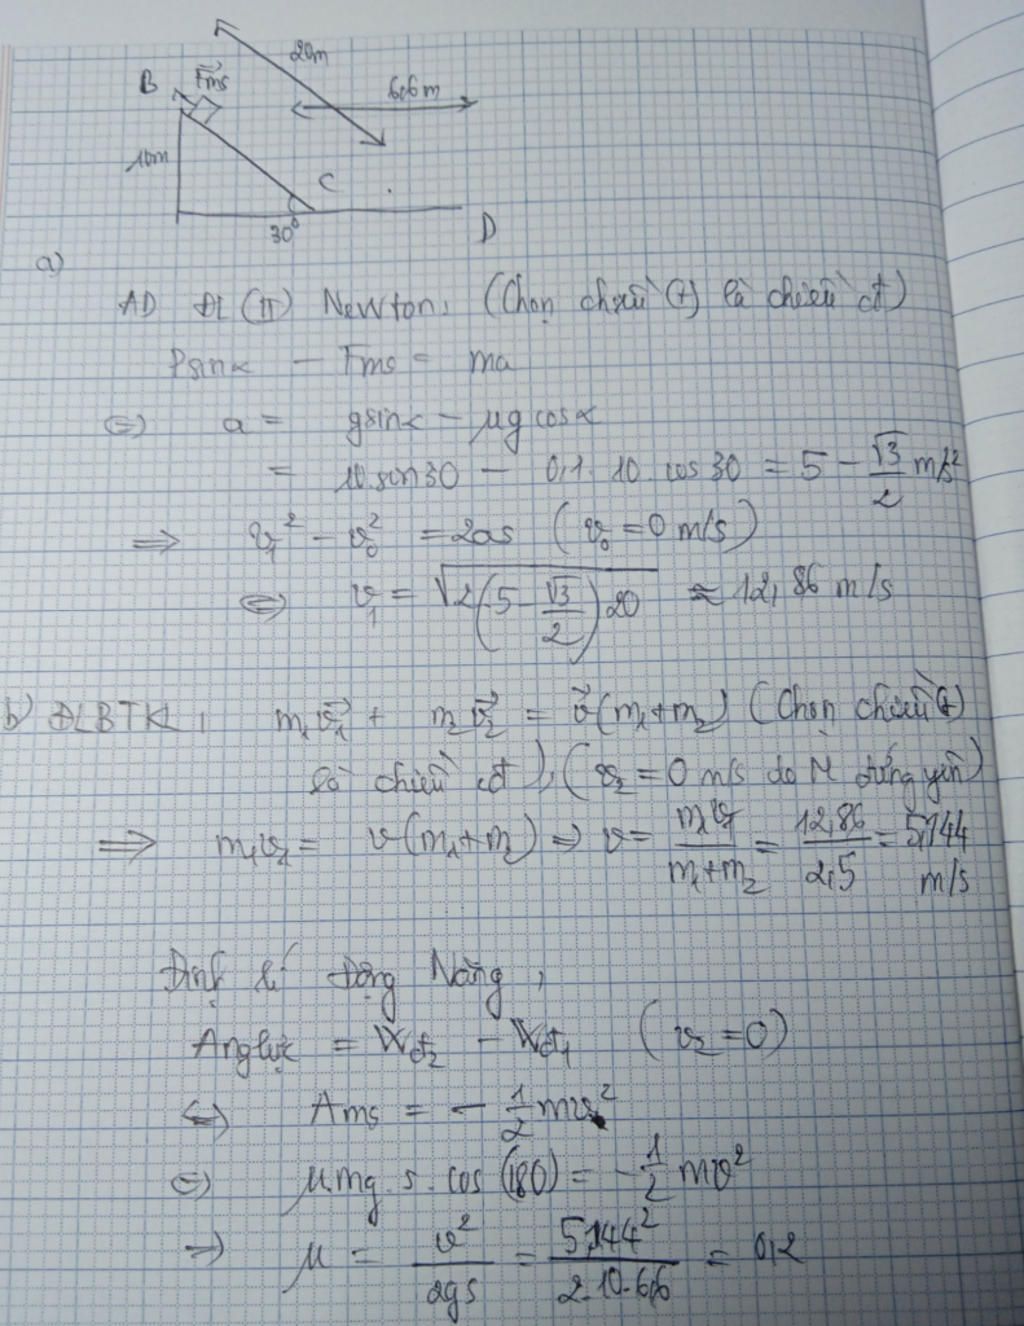 20m
B
Fms
6,6m
10m
C
30°
D
a)
AD ĐL (II) Newton: (Chọn chiều (+) là chiều cđ)
Psinα - Fms = ma
⇔ a = gsinα - μg cosα
= 10.sin30 - 0,1.10.cos30 = 5 - √3/2 m/s²
⇒ v₁² - v₀² = 2as (v₀ = 0 m/s)
⇔ v₁ = √2(5 - √3/2)20 ≈ 12,86 m/s
b) ĐLBTKL: m₁v₁ + m₂v₂ = v(m₁+m₂) (Chọn chiều (+)
là chiều cđ), (v₂ = 0 m/s do M đứng yên)
⇒ m₁v₁ = v(m₁+m₂) ⇒ v = m₁v₁/m₁+m₂ = 12,86/2,5 = 5,144 m/s
Định lí Động Năng:
Anglực = Wđ₂ - Wđ₁ (v₂ = 0)
⇔ Ams = - 1/2 mv²
⇔ μ.mg.s.cos(180) = - 1/2 mv²
⇒ μ = v²/2gs = 5,144²/2.10.6,6 = 0,2